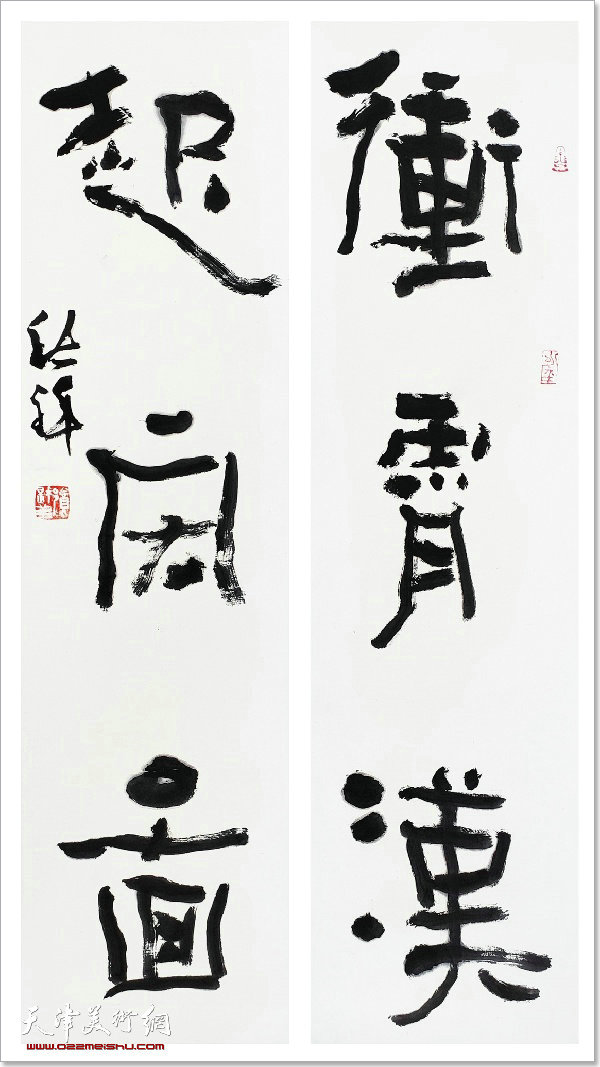 衝霄漢
起宏啚
天津美術網
www.022meishu.com